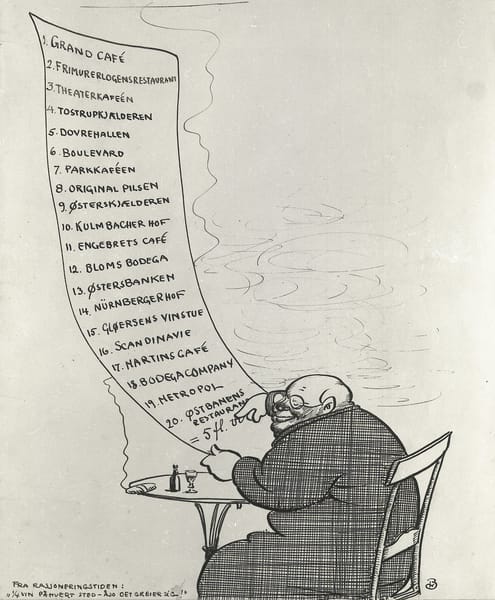 1. GRAND CAFÉ
2. FRIMURERLOGENSRESTAURANT
3. THEATERKAFEÉN
4. TOSTRUPKJÆLDEREN
5. DOVREHALLEN
6. BOULEVARD
7. PARKKAFÉEN
8. ORIGINAL PILSEN
9. ØSTERSKJÆLDEREN
10. KULMBACHER HOF
11. ENGEBRETS CAFÉ
12. BLOMS BODEGA
13. ØSTERSBANKEN
14. NÜRNBERGER HOF
15. GLØERSENS VINSTUE
16. SCANDINAVIE
17. MARTINS CAFÉ
18. BODEGACOMPANY
19. METROPOL
20. ØSTBANENS
RESTAURANT
= 5 fl.
FRA RASJONERINGSTIDEN:
"¼ VIN PÅ HVERT STED – ÅJO DET GREIER SIG!"